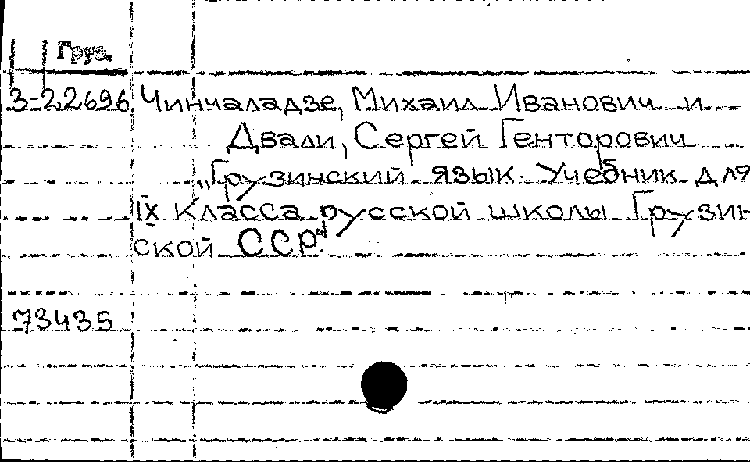 Груз.
3-22696 Чинчаладзе, Михаил Иванович и
Двали, Сергей Генторович
„Грузинский язык. Учебник для
IX класса русской школы Грузин
ской ССР“
73435